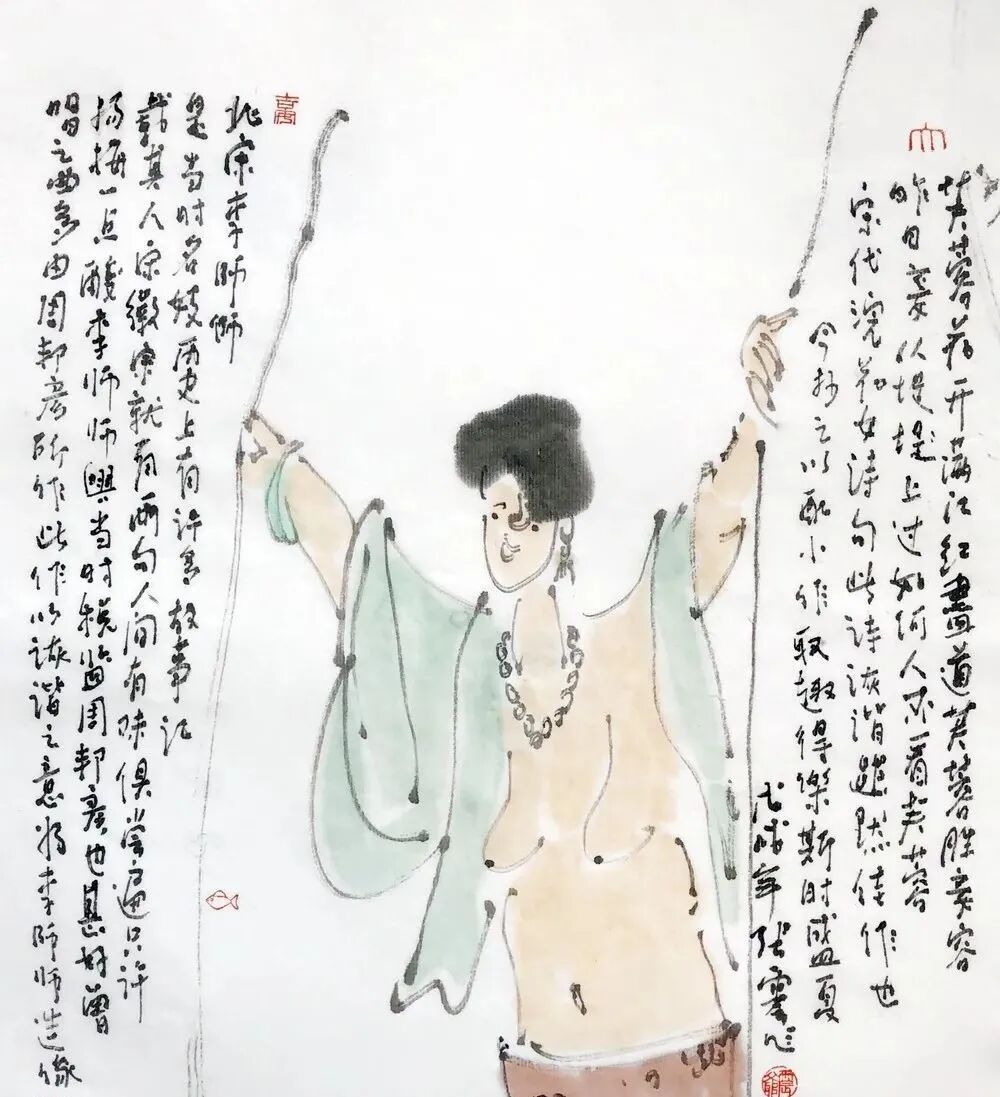 芙蓉花开满江红尽道芙蓉胜妾容
昨日妾从堤堤上过如何人不看芙蓉
宋代浣花女诗句此诗诙谐幽默佳作也
今抄之以配小作取趣得乐斯时盛夏
戊戌年张
北宋李师师
是当时名妓历史上有许多故事记
载其人宋徽宗就有两句人间有味俱尝遍只许
杨梅一点酸李师师与当时
周邦彦也甚好曾
唱之曲多由周邦彦所作此作以诙谐之意为李师师造像